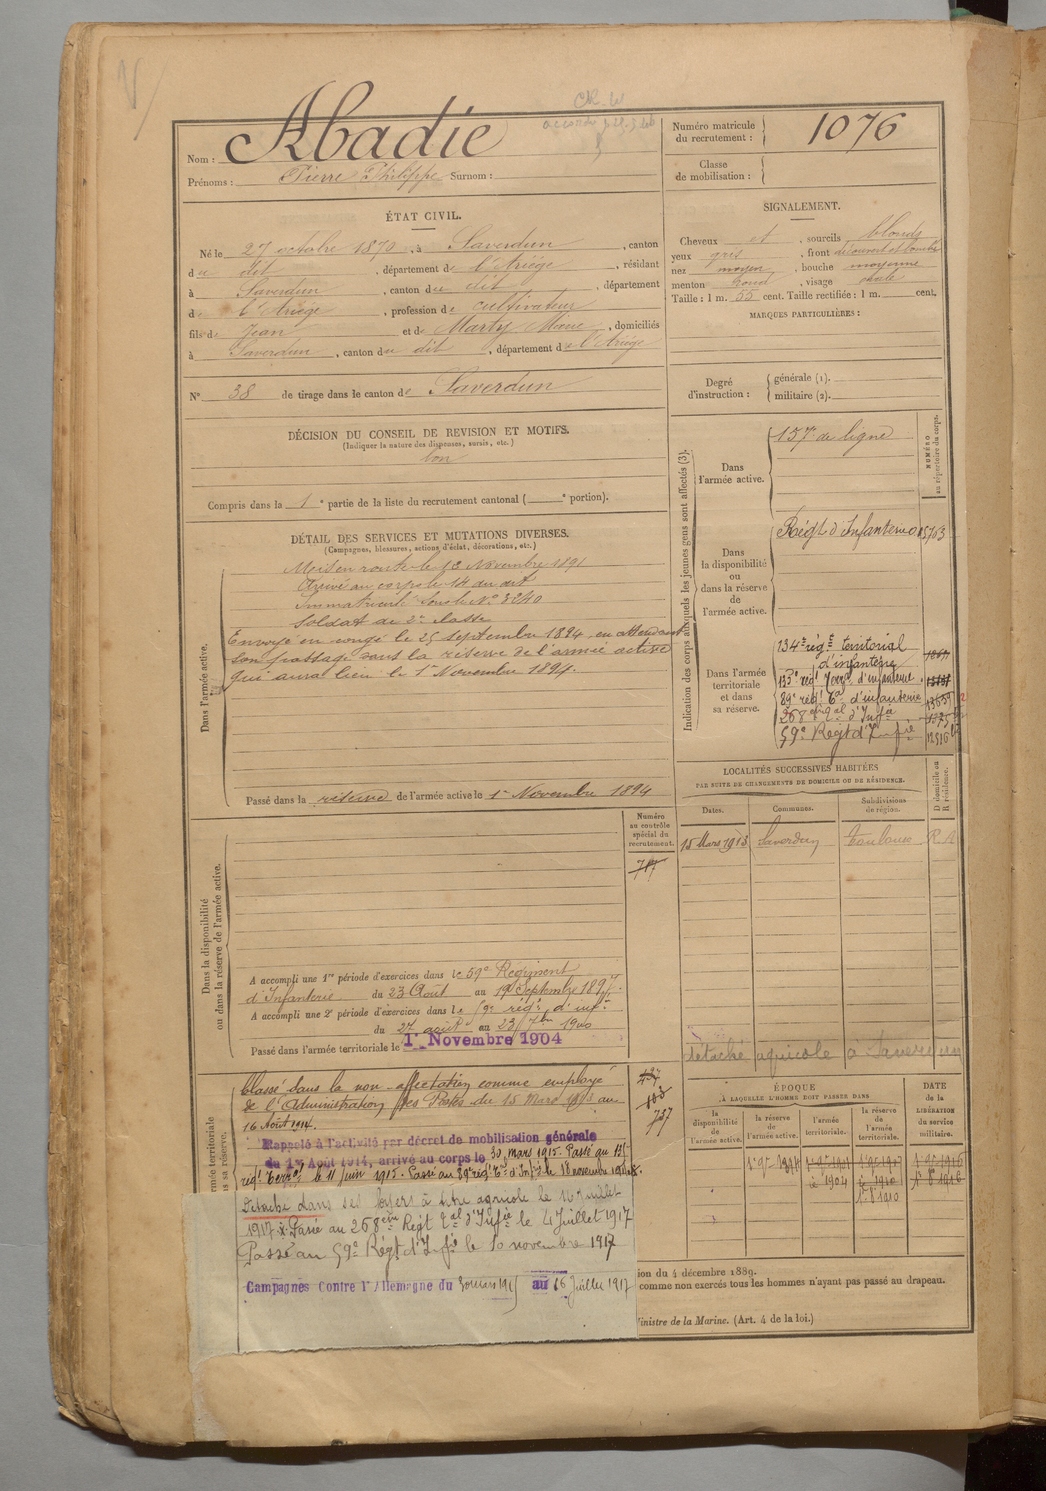 Abadie
Nom :
Prénoms : Pierre Philippe Surnom :
Numéro matricule du recrutement : 1076
Classe de mobilisation :
ÉTAT CIVIL.
Né le 27 octobre 1870, à Saverdun, canton
du dit, département de l'Ariège, résidant
à Saverdun, canton du dit, département
de l'Ariège, profession de cultivateur
fils de Jean et de Marty Marie, domiciliés
à Saverdun, canton du dit, département de l'Ariège
N° 38 de tirage dans le canton de Saverdun
SIGNALEMENT.
Cheveux et, sourcils blonds
yeux gris, front découvert et bombé
nez moyen, bouche moyenne
menton rond, visage ovale
Taille : 1 m. 55 cent. Taille rectifiée : 1 m. cent.
MARQUES PARTICULIÈRES :
Degré d'instruction : générale (1).
militaire (2).
DÉCISION DU CONSEIL DE REVISION ET MOTIFS.
(Indiquer la nature des dispenses, sursis, etc.)
bon
Compris dans la 1e partie de la liste du recrutement cantonal ( e portion).
DÉTAIL DES SERVICES ET MUTATIONS DIVERSES.
(Campagnes, blessures, actions d'éclat, décorations, etc.)
Dans l'armée active.
Mis en route le 12 Novembre 1891
Arrivé au corps le 14 du dit
Immatriculé sous le N° 3240
Soldat de 2e classe
Envoyé en congé le 25 septembre 1894 en attendant
son passage dans la réserve de l'armée active
qui aura lieu le 1er Novembre 1894.
Passé dans la réserve de l'armée active le 1er Novembre 1894
Indication des corps auxquels les jeunes gens sont affectés (3).
NUMÉRO au répertoire du corps.
Dans l'armée active.
157e de ligne
Dans la disponibilité ou dans la réserve de l'armée active.
Régt d'Infanterie 15703
Dans l'armée territoriale et dans sa réserve.
134e régt territorial
d'infanterie
135e régt Terr d'infanterie
89e régt Tal d'infanterie
268e d'Infie
59e Régt d'Infie
LOCALITÉS SUCCESSIVES HABITÉES
PAR SUITE DE CHANGEMENTS DE DOMICILE OU DE RÉSIDENCE.
Dates. Communes. Subdivisions de région. D domicile ou R résidence.
15 Mars 1913 Saverdun Toulouse R
détaché agricole à Saverdun
Dans la disponibilité ou dans la réserve de l'armée active.
Numéro au contrôle spécial du recrutement.
A accompli une 1re période d'exercices dans le 59e Régiment
d'Infanterie du 23 Août au 19 Septembre 1897.
A accompli une 2e période d'exercices dans le 59e régt d'inf.
du 27 août au 23 7bre 1900
Passé dans l'armée territoriale le 1er Novembre 1904
Classé dans la non-affectation comme employé
de l'Administration des Postes du 15 Mars 1913 au
16 Août 1914.
737
Rappelé à l'activité par décret de mobilisation générale
du 1er Août 1914, arrivé au corps le 30 mars 1915. Passé au 135
régt terral le 11 juin 1915. Passé au 89e régt Tal d'Inf le 18 novembre
Détaché dans ses foyers à titre agricole le 16 juillet
1917 Passé au 268ème Régt tal d'Infie le 4 Juillet 1917
Passé au 59e Régt d'Infie le 10 novembre 1917
Campagnes Contre l'Allemagne du 30 mars 1915 au 16 Juillet 1917
ÉPOQUE
À LAQUELLE L'HOMME DOIT PASSER DANS
la disponibilité de l'armée active.
la réserve de l'armée active.
l'armée territoriale.
la réserve de l'armée territoriale.
DATE de la LIBÉRATION du service militaire.
1er 9bre 1894
1904
1910
1916
ion du 4 décembre 1889.
comme non exercés tous les hommes n'ayant pas passé au drapeau.
Ministre de la Marine. (Art. 4 de la loi.)